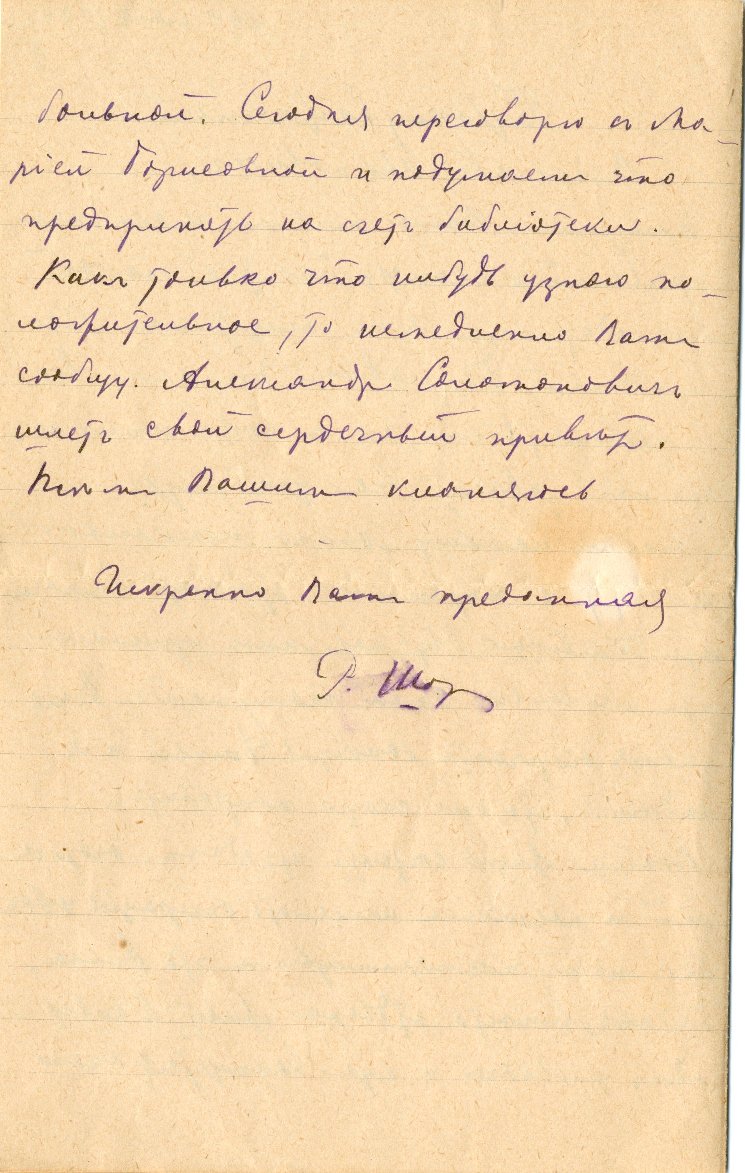 больной. Сегодня переговорю съ Ма-
ріей Борисовной и подумаемъ что
предпринять на счетъ библіотеки.
Какъ только что нибудь узнаю по-
ложительное, то немедленно Вамъ
сообщу. Александръ Соломоновичъ
шлетъ свой сердечный привѣтъ.
Всѣмъ Вашимъ кланяюсь
Искренно Вамъ преданная
Р. Шор